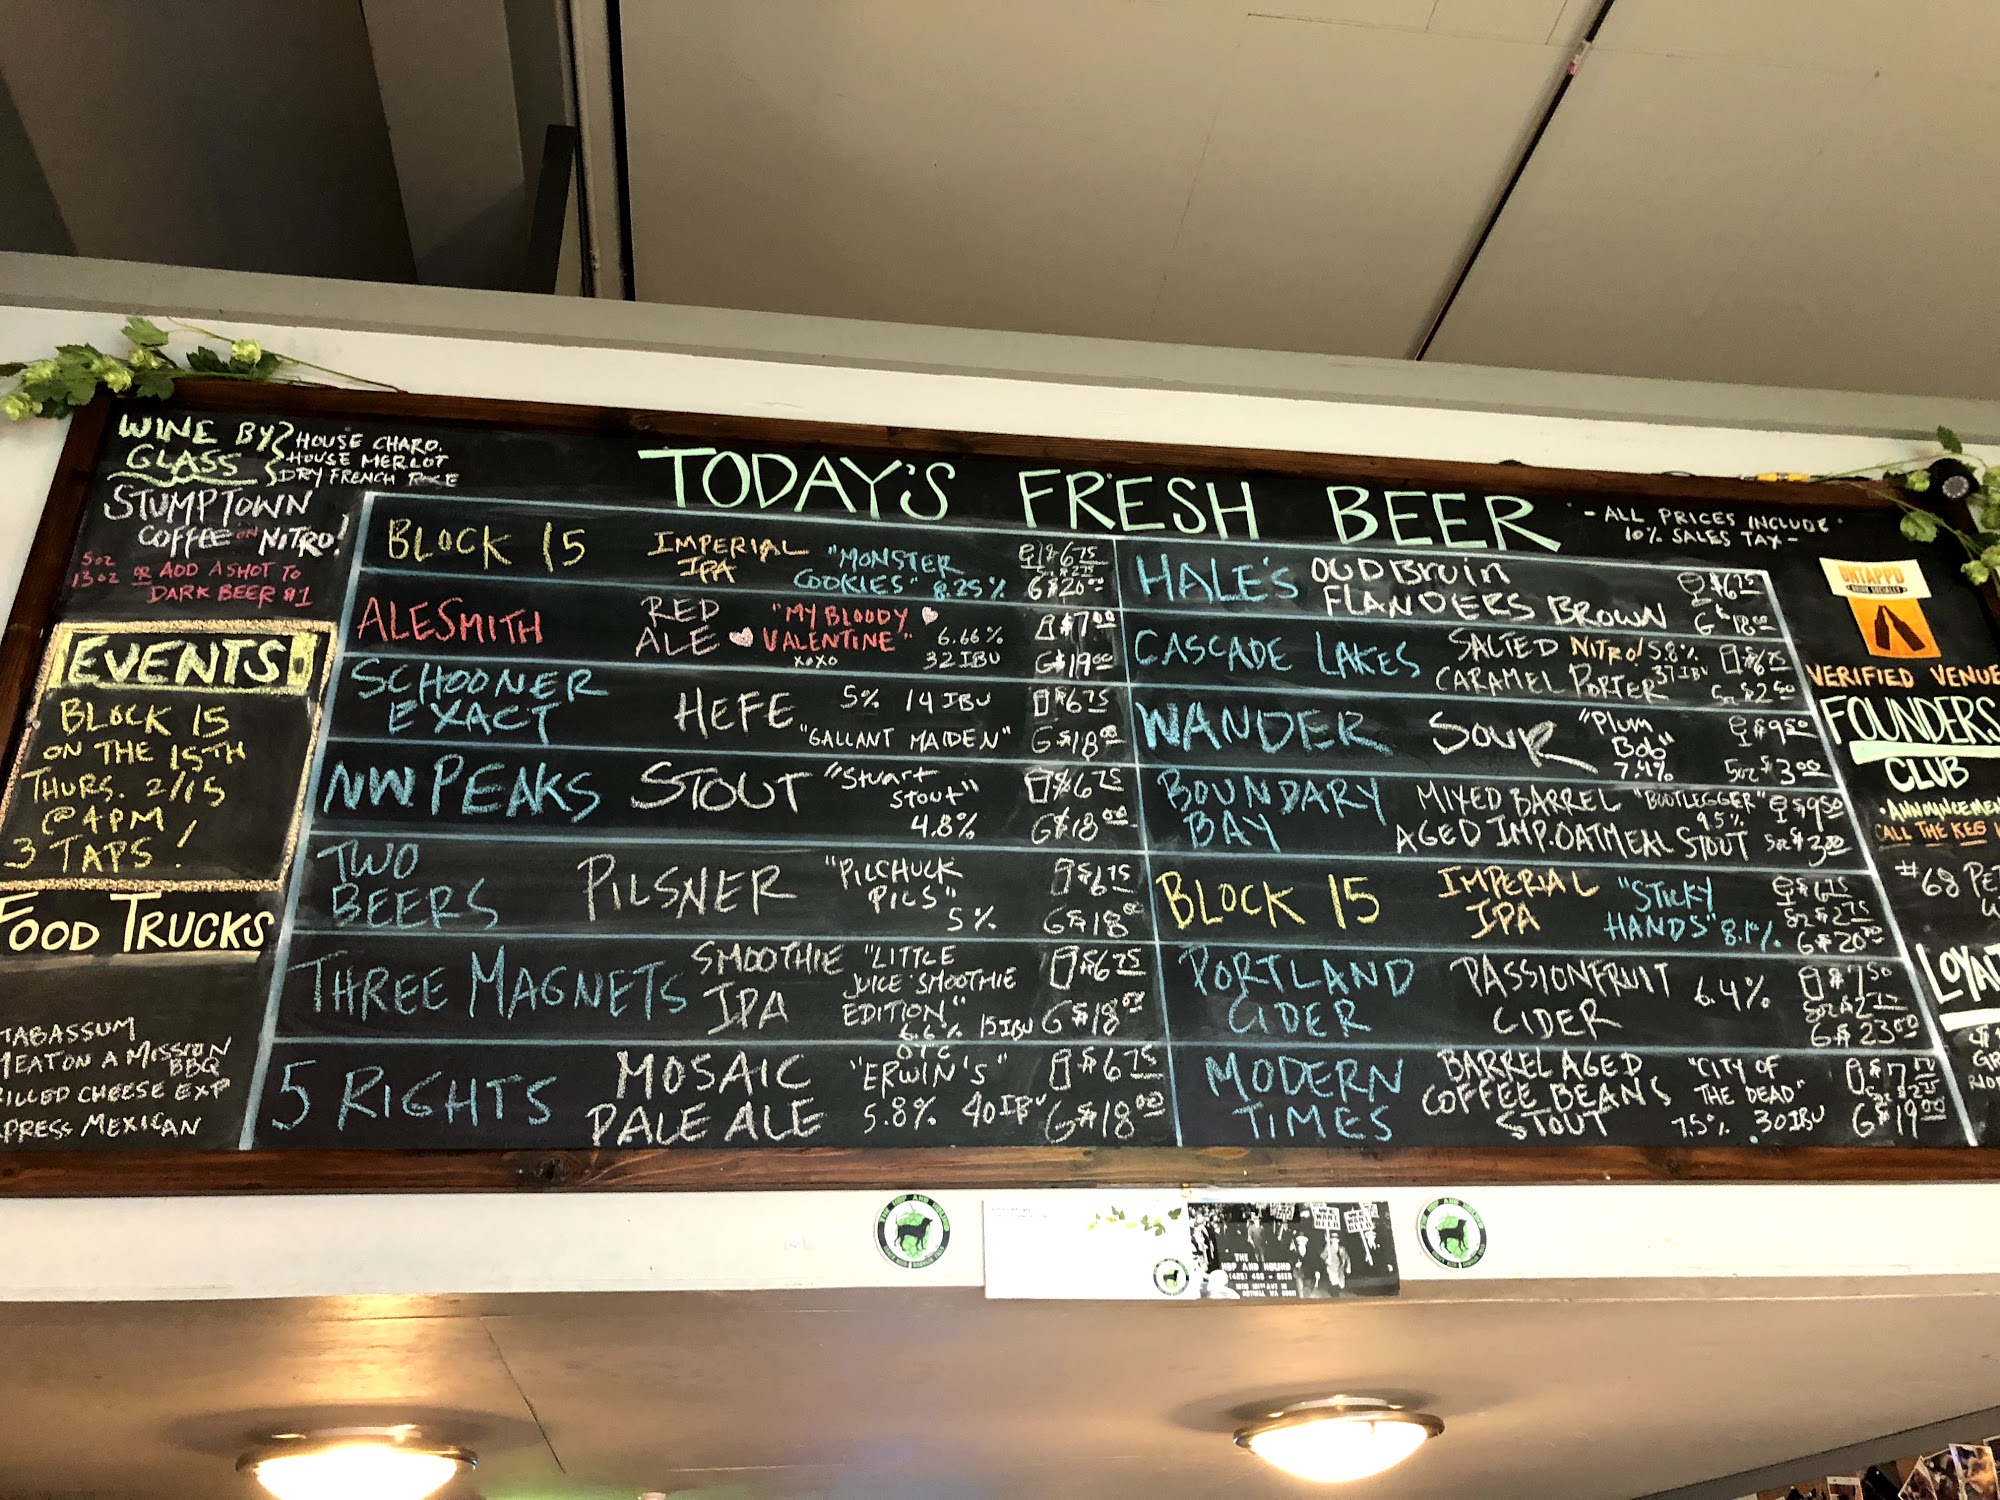 WINE BY
GLASS
HOUSE CHARD.
HOUSE MERLOT
DRY FRENCH
STUMPTOWN
COFFEE ON NITRO!
5oz
13oz OR ADD A SHOT TO
DARK BEER $1
EVENTS
BLOCK 15
ON THE 15TH
THURS. 2/15
@ 4PM
3 TAPS!
FOOD TRUCKS
TABASSUM
MEAT ON A MISSION
BBQ
CHEESE EXP
MEXICAN
TODAY'S FRESH BEER
- ALL PRICES INCLUDE
10% SALES TAX -
BLOCK 15
IMPERIAL
IPA
"MONSTER
COOKIES" 8.25%
$6.75
G $20.00
ALESMITH
RED
ALE
"MY BLOODY
VALENTINE"
XOXO
6.66%
32 IBU
$7.00
G $19.00
SCHOONER
EXACT
HEFE
5% 14 IBU
"GALLANT MAIDEN"
$6.75
G $18.00
NW PEAKS
STOUT
"Stuart
Stout"
4.8%
$6.75
G $18.00
TWO
BEERS
PILSNER
"PILCHUCK
PILS"
5%
$6.75
G $18.00
THREE MAGNETS
SMOOTHIE
IPA
"LITTLE
JUICE SMOOTHIE
EDITION"
6.6% 15 IBU
$6.75
G $18.00
5 RIGHTS
MOSAIC
PALE ALE
OTC
"ERWIN'S"
5.8% 40 IBU
$6.75
G $18.00
HALE'S
OUD BRUIN
FLANDERS BROWN
$6.75
G $18.00
CASCADE LAKES
SALTED NITRO! 5.8%
CARAMEL PORTER 37 IBU
$6.75
5oz $2.50
WANDER
SOUR
"Plum
Bob"
7.4%
$9.50
5oz $3.00
BOUNDARY
BAY
MIXED BARREL "BOOTLEGGER"
9.5%
AGED IMP. OATMEAL STOUT
$9.50
5oz $3.00
BLOCK 15
IMPERIAL
IPA
"STICKY
HANDS" 8.1%
$6.75
5oz $2.75
G $20.00
PORTLAND
CIDER
PASSIONFRUIT
CIDER
6.4%
$7.50
G $23.00
MODERN
TIMES
BARREL AGED
COFFEE BEANS
STOUT
"CITY OF
THE DEAD"
7.5% 30 IBU
G $19.00
UNTAPPD
DRINK SOCIALLY
VERIFIED VENUE
FOUNDERS
CLUB
CALL THE KEG
#68
THE HOP AND HOUND
WE WANT BEER
THE
HOP AND HOUND